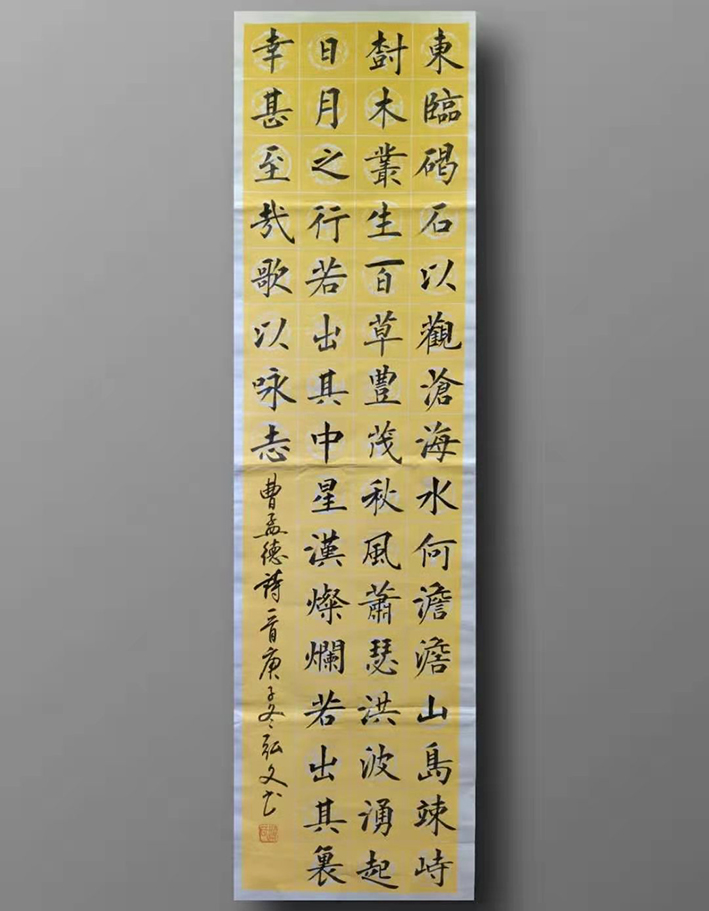 東臨碣石以觀滄海水何澹澹山島竦峙
樹木叢生百草豐茂秋風蕭瑟洪波涌起
日月之行若出其中星漢燦爛若出其裏
幸甚至哉歌以咏志
曹孟德詩一首庚子冬弘文书